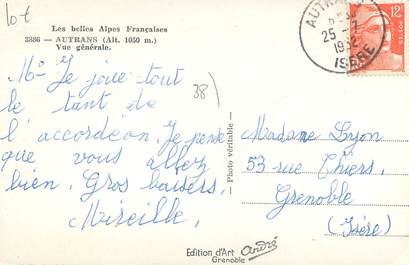 lot
Les belles Alpes Françaises
3386 - AUTRANS (Alt. 1050 m.)
Vue générale.
Me Je joue tout
le tant de
l'accordéon. Je pense
que vous allez
bien. Gros baisers.
Mireille.
38)
- Photo véritable -
AUTRANS
25 -7
1952
ISERE
12F
POSTES
Madame Lyon
53 rue Thiers.
Grenoble
(Isère)
Edition d'Art André
Grenoble